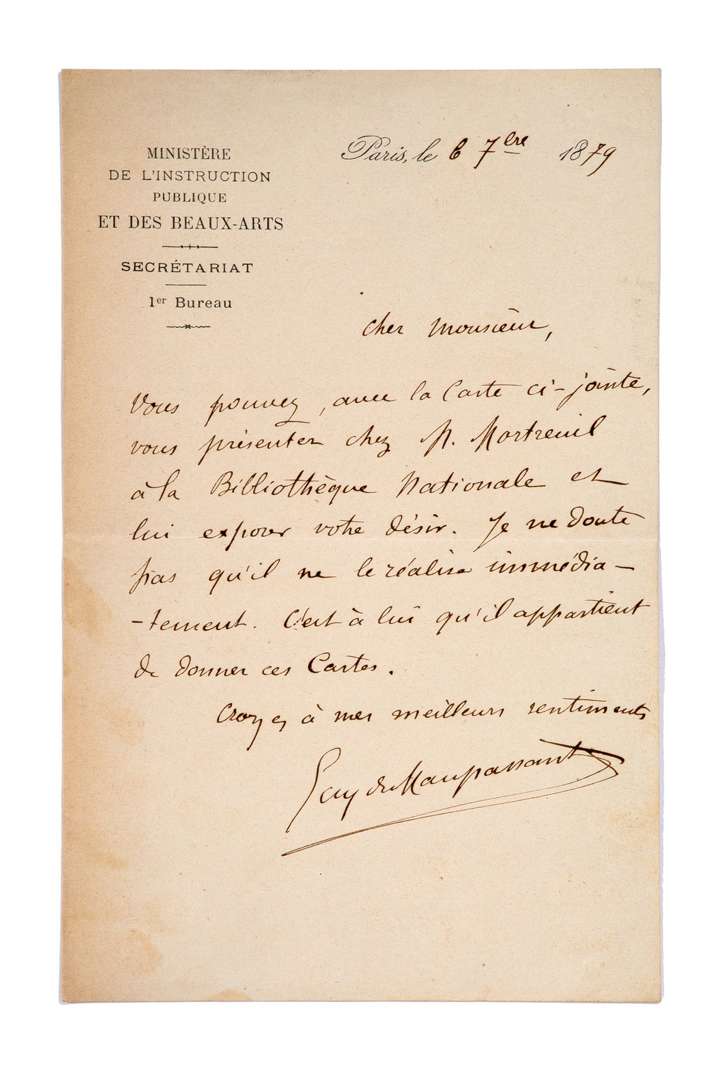 MINISTÈRE
DE L'INSTRUCTION
PUBLIQUE
ET DES BEAUX-ARTS
SECRÉTARIAT
1er Bureau
Paris, le 6 7bre 1879
Cher Monsieur,
Vous pouvez, avec la Carte ci-jointe,
vous présenter chez M. Mortreuil
à la Bibliothèque Nationale et
lui exposer votre désir. Je ne doute
pas qu'il ne le réalise immédia-
-tement. C'est à lui qu'il appartient
de donner ces Cartes.
Croyez à mes meilleurs sentiments
Guy de Maupassant